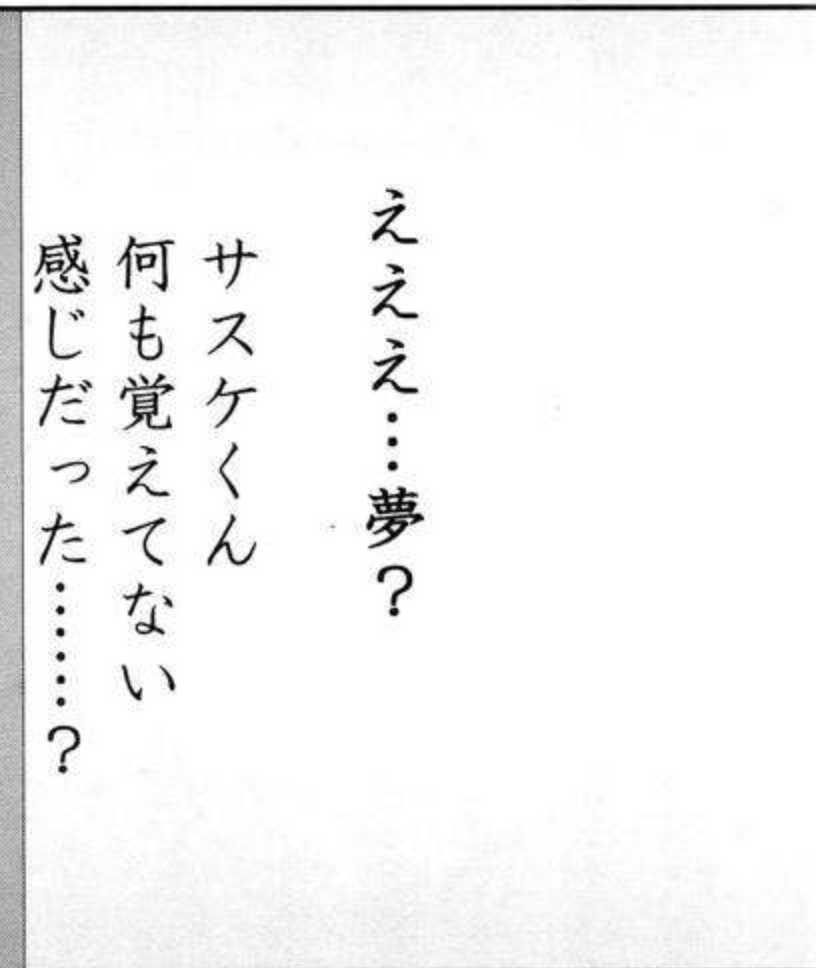 えええ…夢？
サスケくん
何も覚えてない
感じだった……？